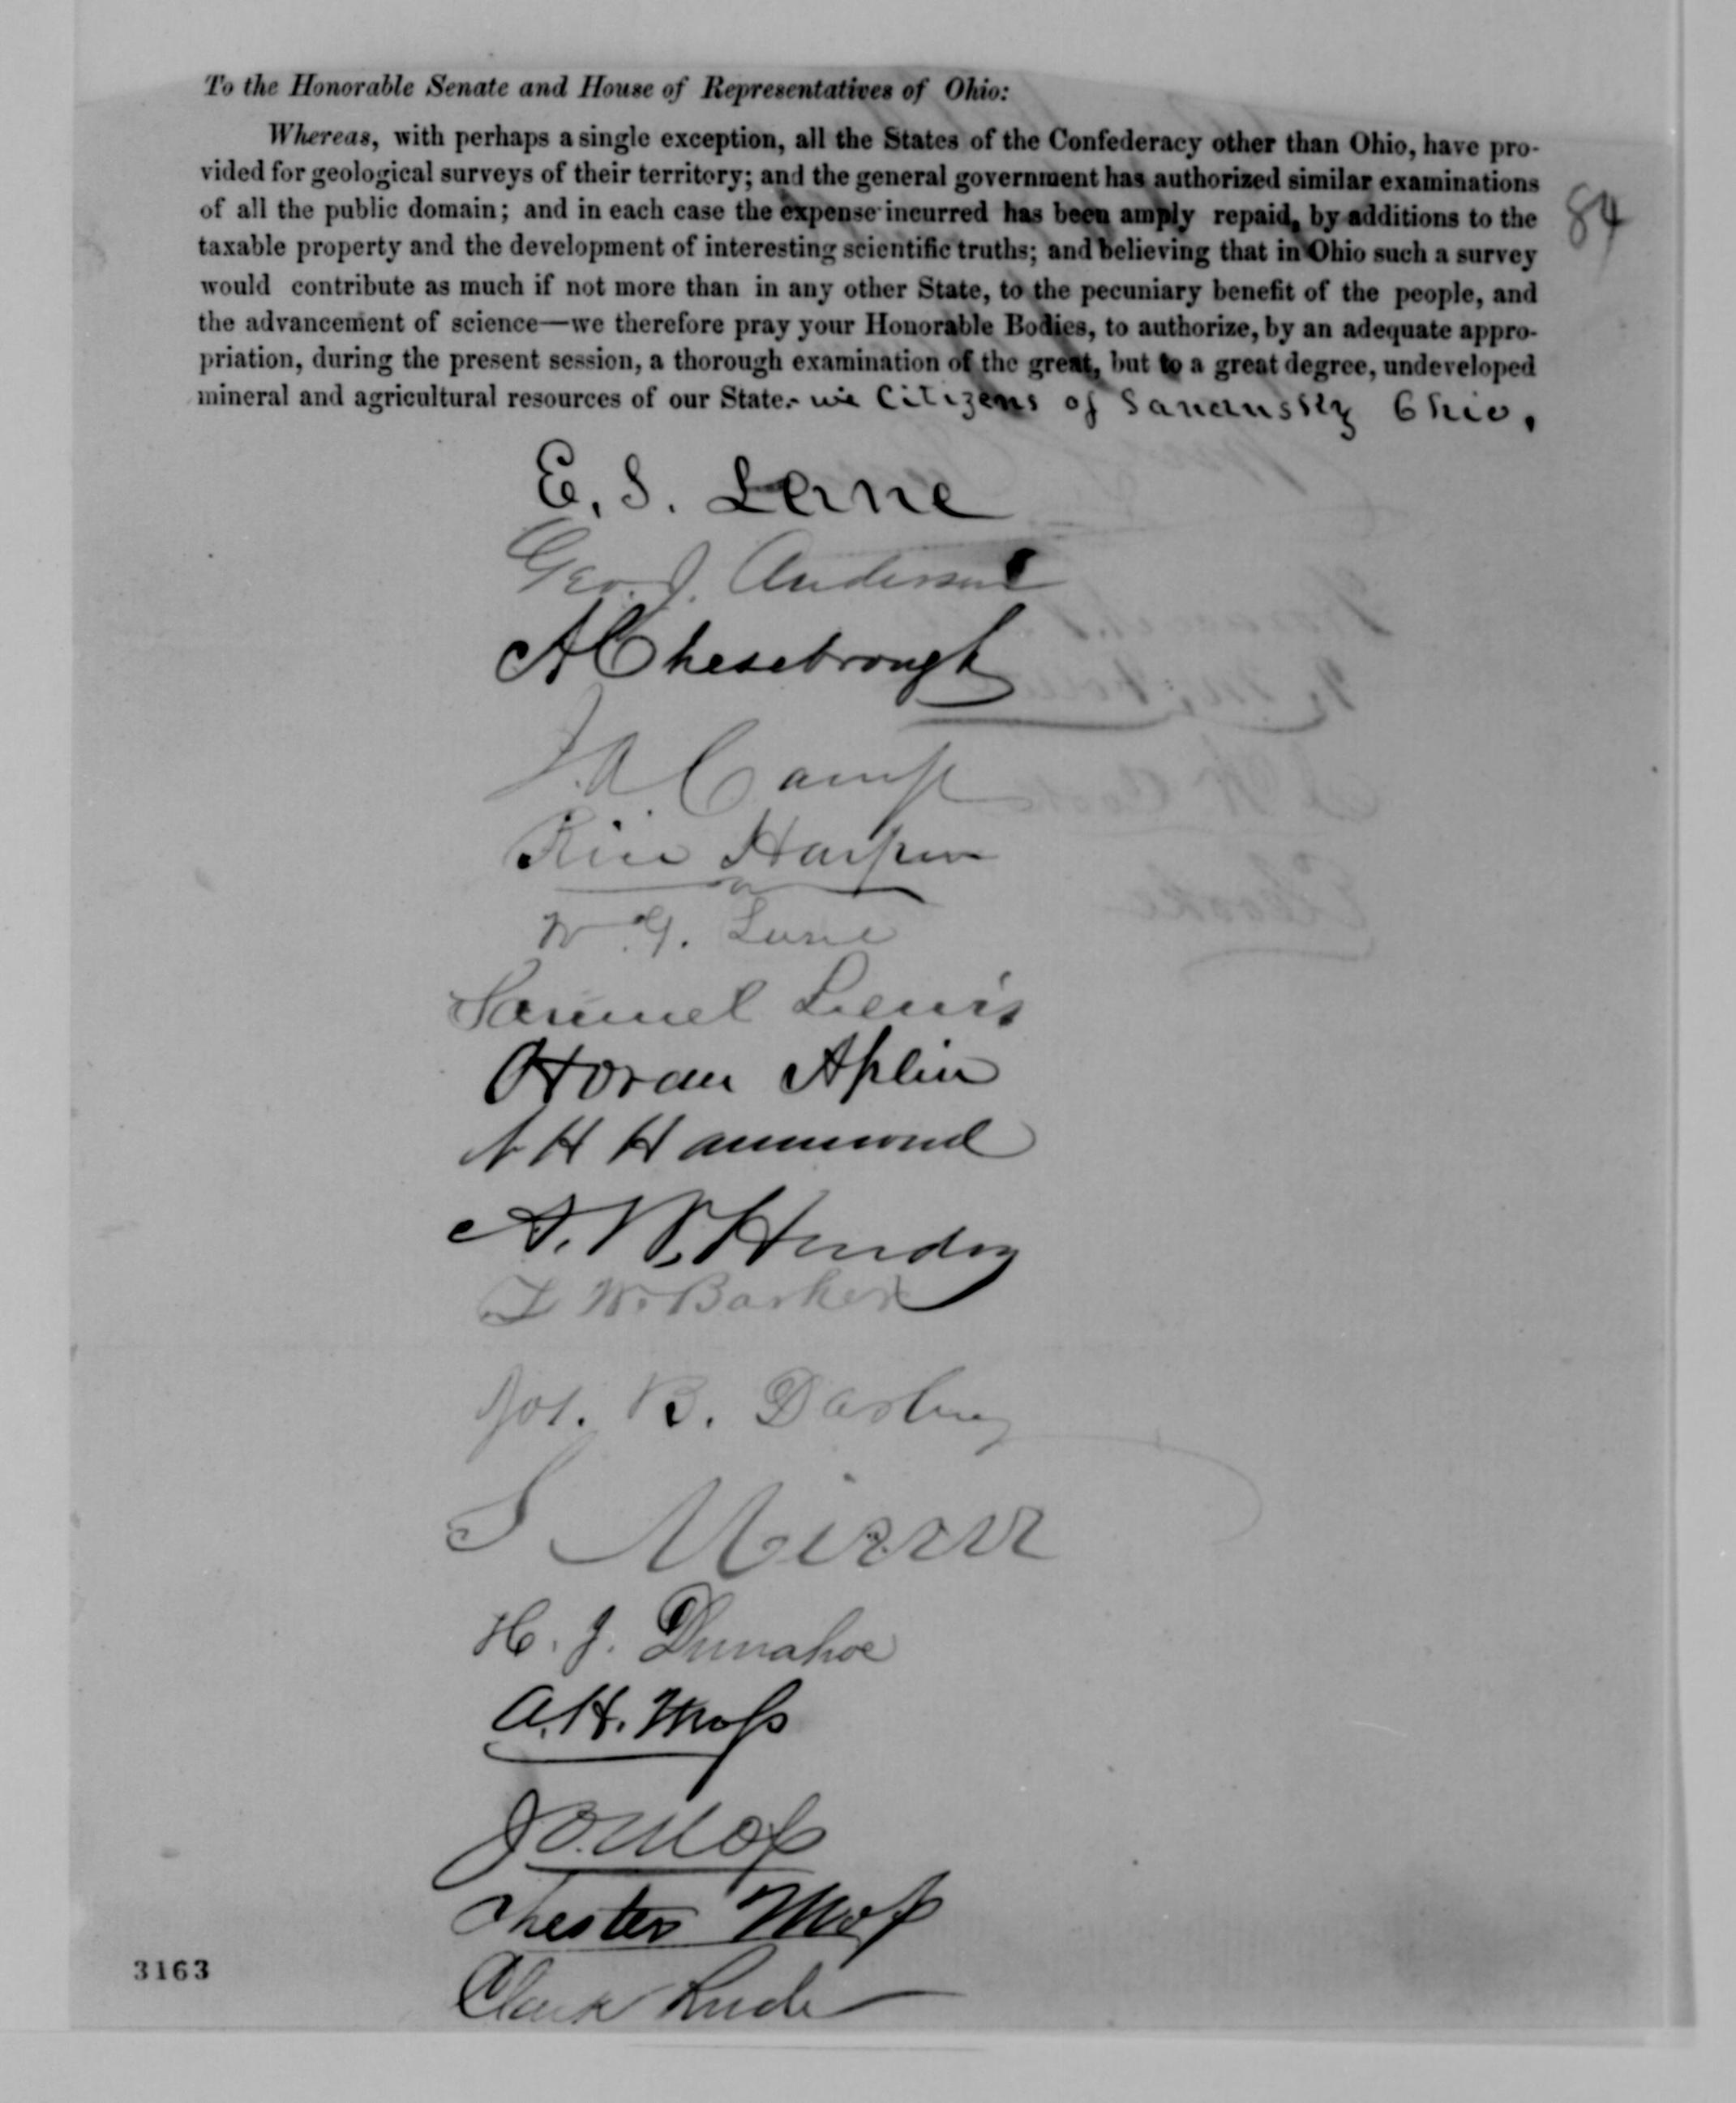 To the Honorable Senate and House of Representatives of Ohio:
Whereas, with perhaps a single exception, all the States of the Confederacy other than Ohio, have pro-
vided for geological surveys of their territory; and the general government has authorized similar examinations
of all the public domain; and in each case the expense incurred has been amply repaid, by additions to the
84
taxable property and the development of interesting scientific truths; and believing that in Ohio such a survey
would contribute as much if not more than in any other State, to the pecuniary benefit of the people, and
the advancement of science—we therefore pray your Honorable Bodies, to authorize, by an adequate appro-
priation, during the present session, a thorough examination of the great, but to a great degree, undeveloped
mineral and agricultural resources of our State.- we Citizens of Sandusky Ohio.
E. S. Lane
Geo. J. Anderson
A Chesebrough
J. A Camp
Rice Harper
W. G. Lane
Samuel Lewis
Horan Aplin
H Hammond
A. W. Hendry
L W. Barker
Jos. B. Darling
S Minor
H. J. Donahoe
A. H. Moss
J. O. Moss
Chester Moss
Clark Rude
3163